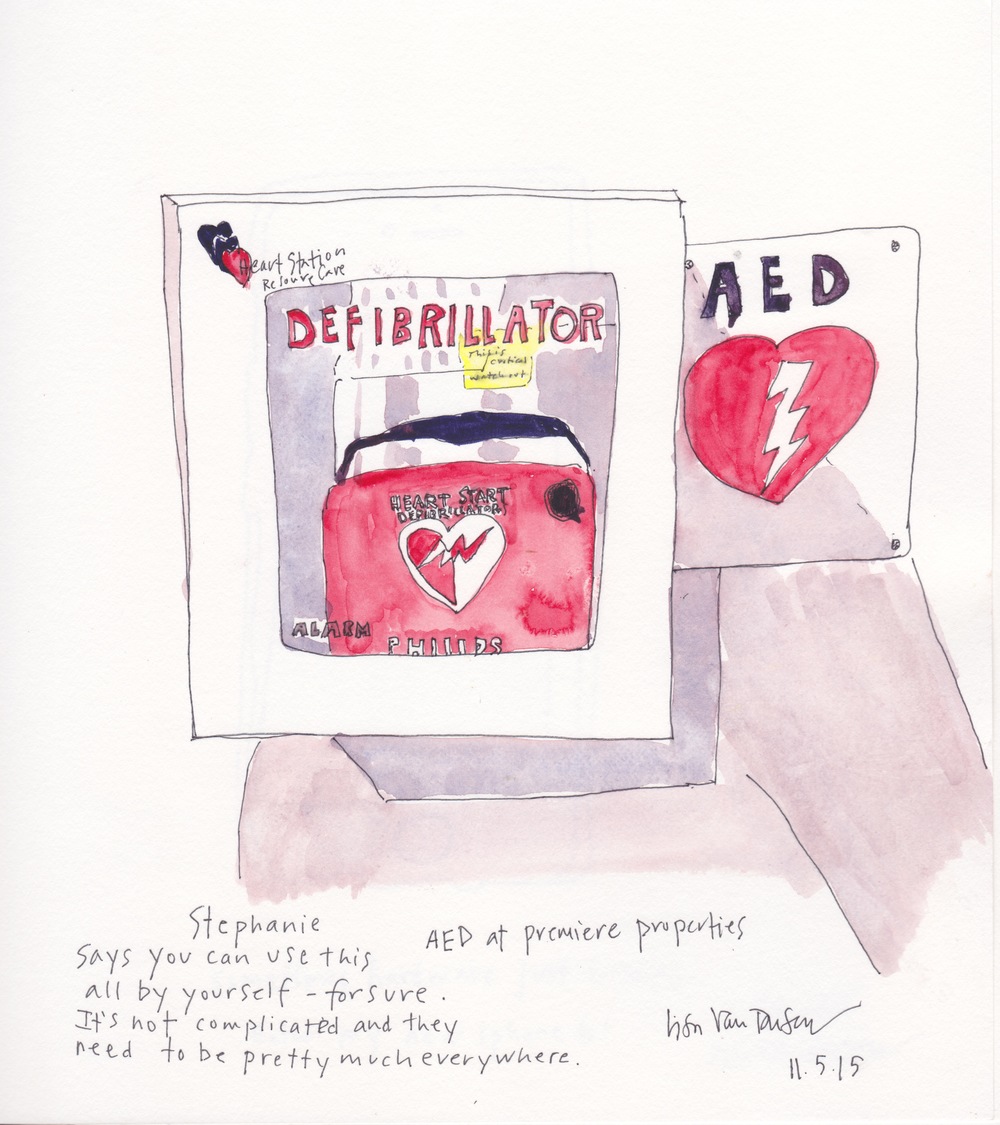 Heart Station
Resource Care
DEFIBRILLATOR
This is
critical
watch out
AED
HEART START
DEFIBRILLATOR
ALARM
PHILIPS
Stephanie
Says you can use this
all by yourself - forsure.
It's not complicated and they
need to be pretty much everywhere.
AED at premiere properties
Van Dusen
11.5.15